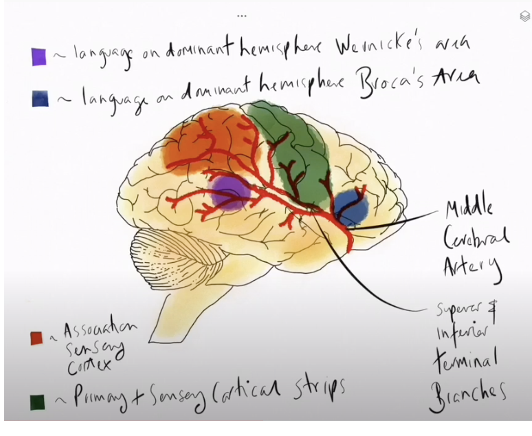 ~ language on dominant hemisphere Wernicke's area
~ language on dominant hemisphere Broca's Area
Middle
Cerebral
Artery
Superior &
Inferior
terminal
Branches
~ Association
Sensory
Cortex
~ Primary + Sensory Cortical Strips